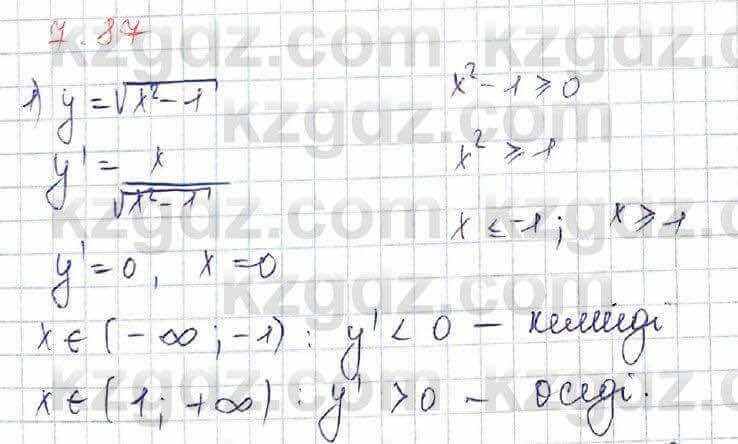 7.37
1) y = √x²-1   x²-1 ≥ 0
y' = x/√x²-1   x² ≥ 1
x ≤ -1; x ≥ 1
y' = 0, x = 0
x ∈ (-∞; -1) : y' < 0 - кемиді
x ∈ (1; +∞) : y' > 0 - өседі.
kzgdz.com kzgdz.com
kzgdz.com
kzgdz.com kzgdz.com
kzgdz.com
kzgdz.com kzgdz.com